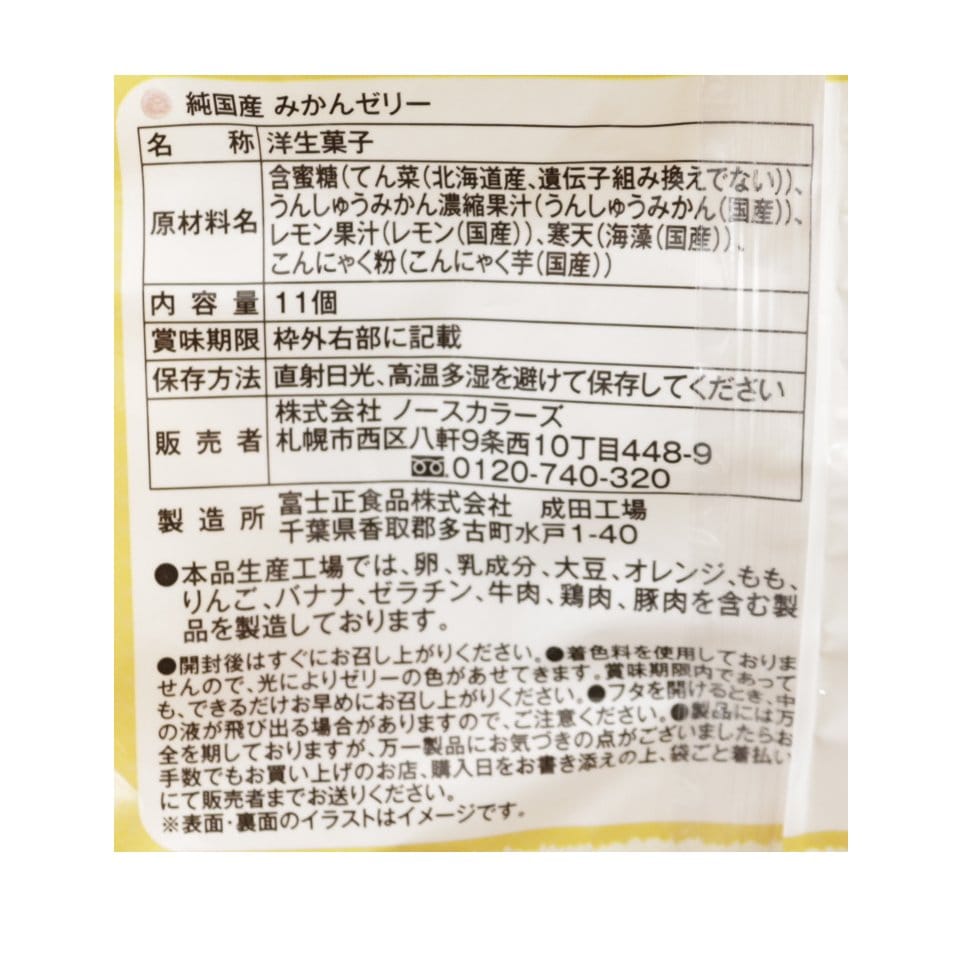 純国産 みかんゼリー
名称 洋生菓子
原材料名 含蜜糖(てん菜(北海道産、遺伝子組み換えでない))、
うんしゅうみかん濃縮果汁(うんしゅうみかん(国産))、
レモン果汁(レモン(国産))、寒天(海藻(国産))、
こんにゃく粉(こんにゃく芋(国産))
内容量 11個
賞味期限 枠外右部に記載
保存方法 直射日光、高温多湿を避けて保存してください
販売者 株式会社 ノースカラーズ
札幌市西区八軒9条西10丁目448-9
0120-740-320
製造所 富士正食品株式会社 成田工場
千葉県香取郡多古町水戸1-40
●本品生産工場では、卵、乳成分、大豆、オレンジ、もも、
りんご、バナナ、ゼラチン、牛肉、鶏肉、豚肉を含む製
品を製造しております。
●開封後はすぐにお召し上がりください。●着色料を使用しておりま
せんので、光によりゼリーの色があせてきます。賞味期限内であって
も、できるだけお早めにお召し上がりください。●フタを開けるとき、中
の液が飛び出る場合がありますので、ご注意ください。●製品には万
全を期しておりますが、万一製品にお気づきの点がございましたらお
手数でもお買い上げのお店、購入日をお書き添えの上、袋ごと着払い
にて販売者までお送りください。
※表面・裏面のイラストはイメージです。